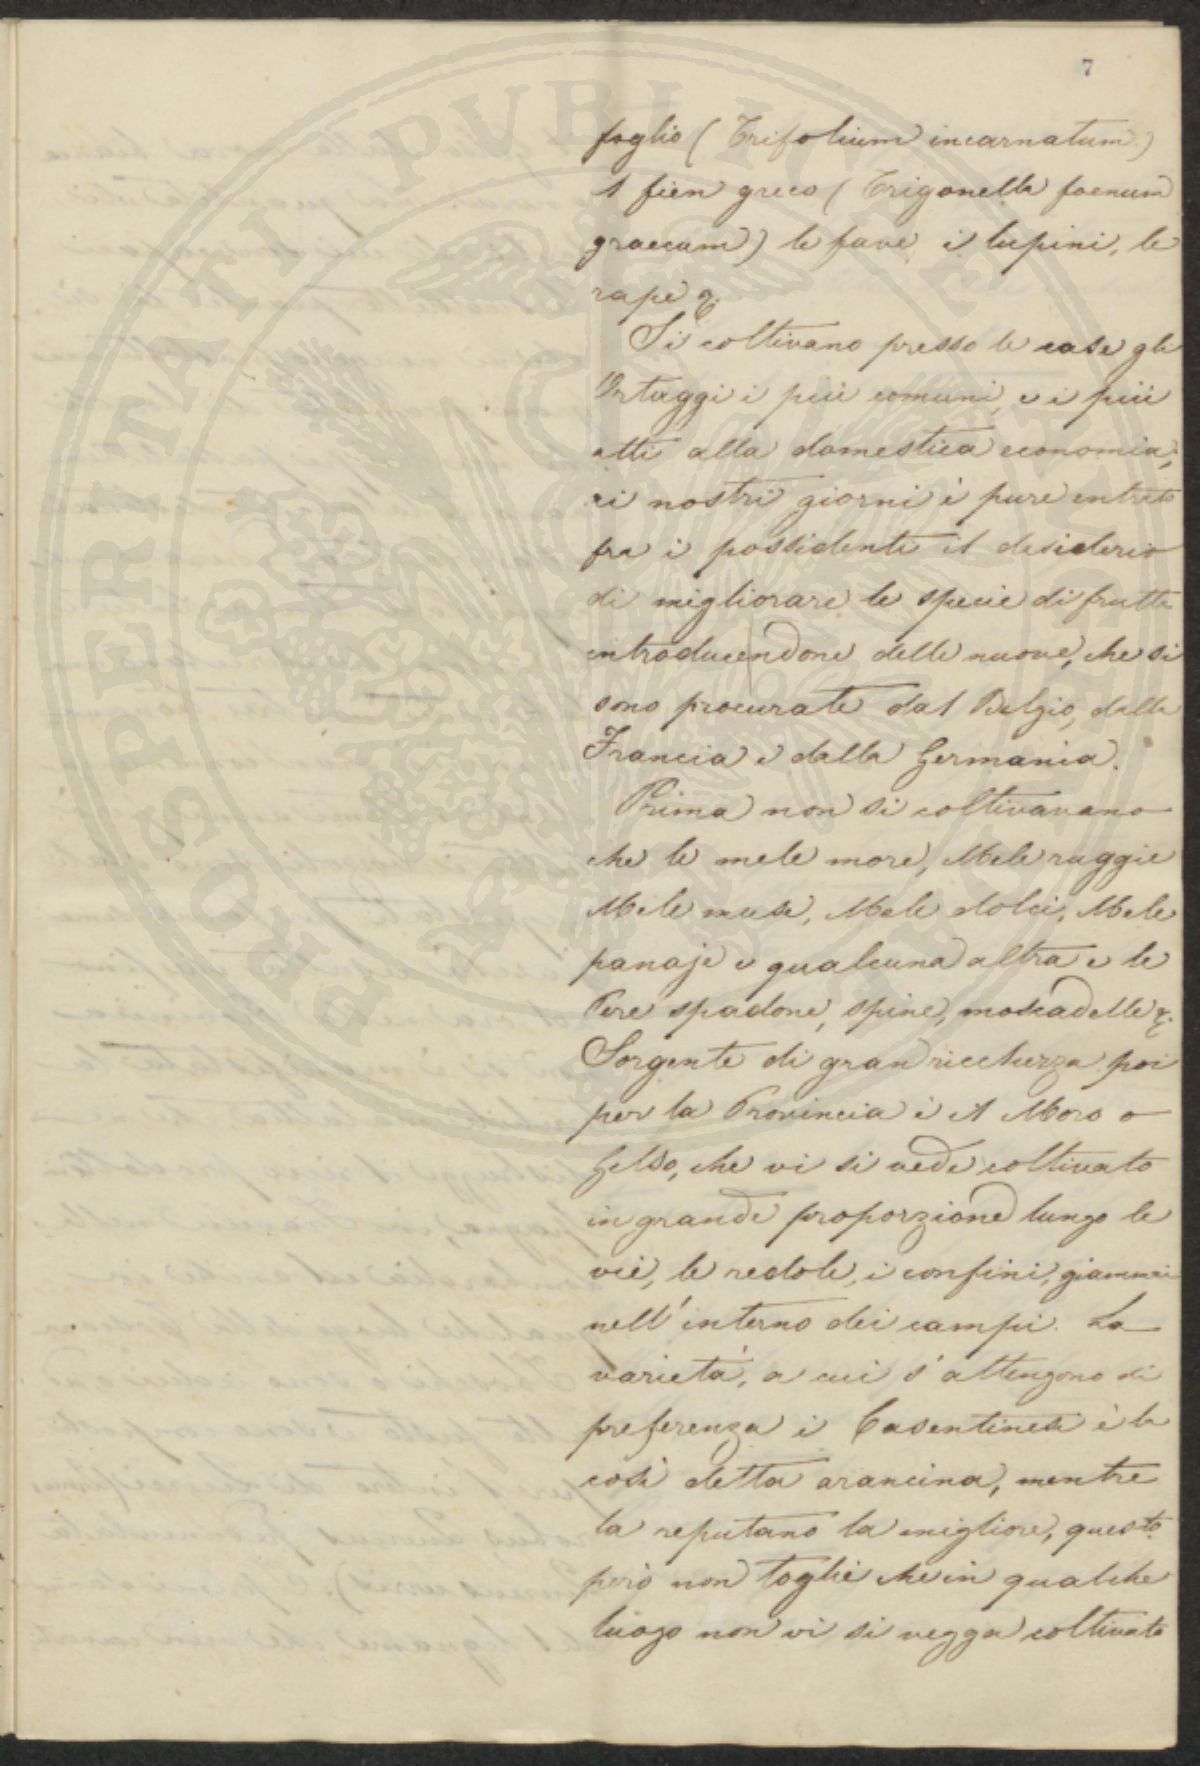 7
foglio (Trifolium incarnatum)
il fien greco (Trigonella foenum
graecum) le fave, i lupini, le
rape &.
Si coltivano presso le case gli
Ortaggi i più comuni, e i più
atti alla domestica economia;
ai nostri giorni è pure entrato
fra i possidenti il desiderio
di migliorare le specie di frutti
introducendone delle nuove, che si
sono procurate dal Belgio, dalla
Francia e dalla Germania.
Prima non si coltivavano
che le mele more, Mele ruggie
Mele muse, Mele dolci, Mele
panaje e qualcuna altra e le
Pere spadone, spine, moscadelle &.
Sorgente di gran ricchezza poi
per la Provincia è il Moro o
Gelso, che vi si vede coltivato
in grande proporzione lungo le
vie, le redole, i confini, giammai
nell'interno dei campi. La
varietà, a cui s'attengono di
preferenza i Casentinesi è la
così detta arancina, mentre
la reputano la migliore, questo
però non toglie che in qualche
luogo non vi si vegga coltivato
PROSPERITATI PVBLICAE